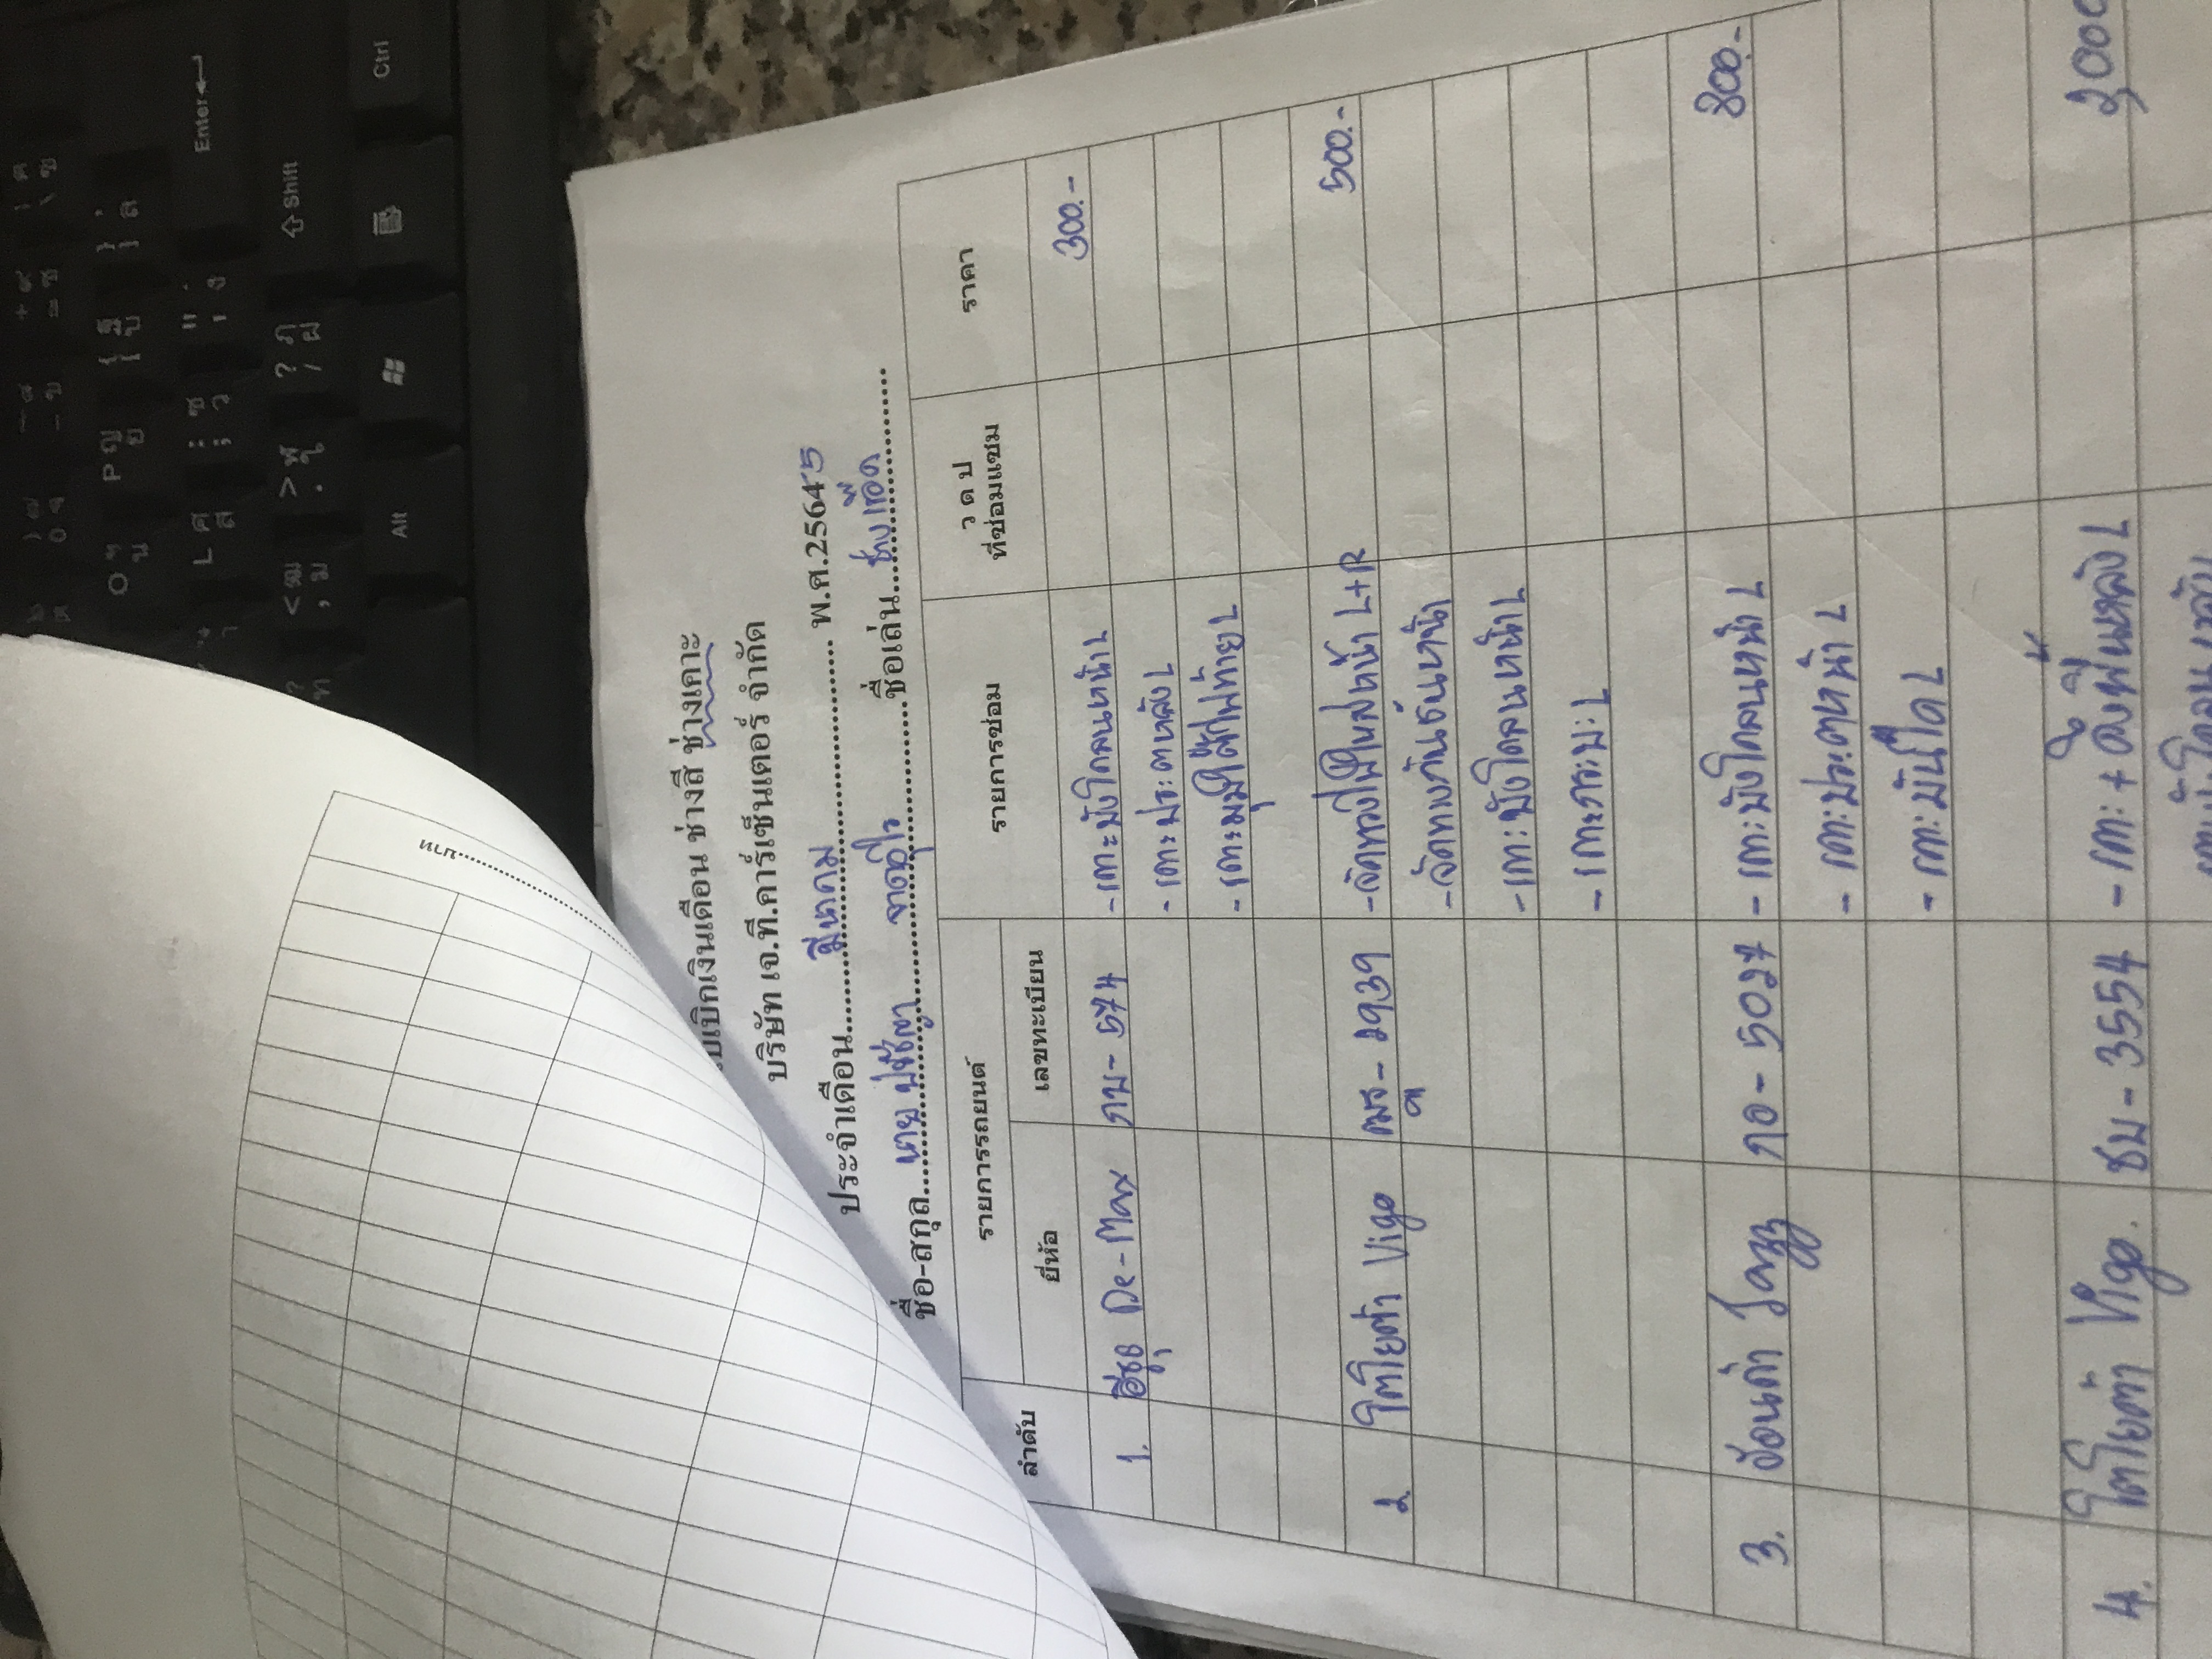 บเบิกเงินเดือน ช่างสี ช่างเคาะ
บริษัท เจ.ที.คาร์เซ็นเตอร์ จำกัด
ประจำเดือน มีนาคม พ.ศ.25645
ชื่อ-สกุล นาย ปรัชญา ชื่อเล่น ช่างเชิด
ลำดับ รายการรถยนต์ รายการซ่อม ว ด ป ที่ซ่อมแซม ราคา
ยี่ห้อ เลขทะเบียน
1. อีซูซุ De-Max กบ-574 -เคาะบังโคลนหน้า L 300.-
- เคาะประตูหลัง L
- เคาะมุมใต้ไฟท้าย L
2 โตโยต้า Vigo -2939 -จัดทรงไฟในหน้า L+R 500.-
-จัดคานกันชนหน้า
- เคาะบังโคลนหน้า L
- เคาะกระบะ L
3. ฮอนด้า Jazz กอ-5027 - เคาะบังโคลนหน้า L 800.-
- เคาะประตูหน้า L
- เคาะบันได L
4. โตโยต้า Vigo. ชม-3554 - เคาะ+ดึง หลัง L 2000
บาท
Enter
Shift
Ctrl
Alt